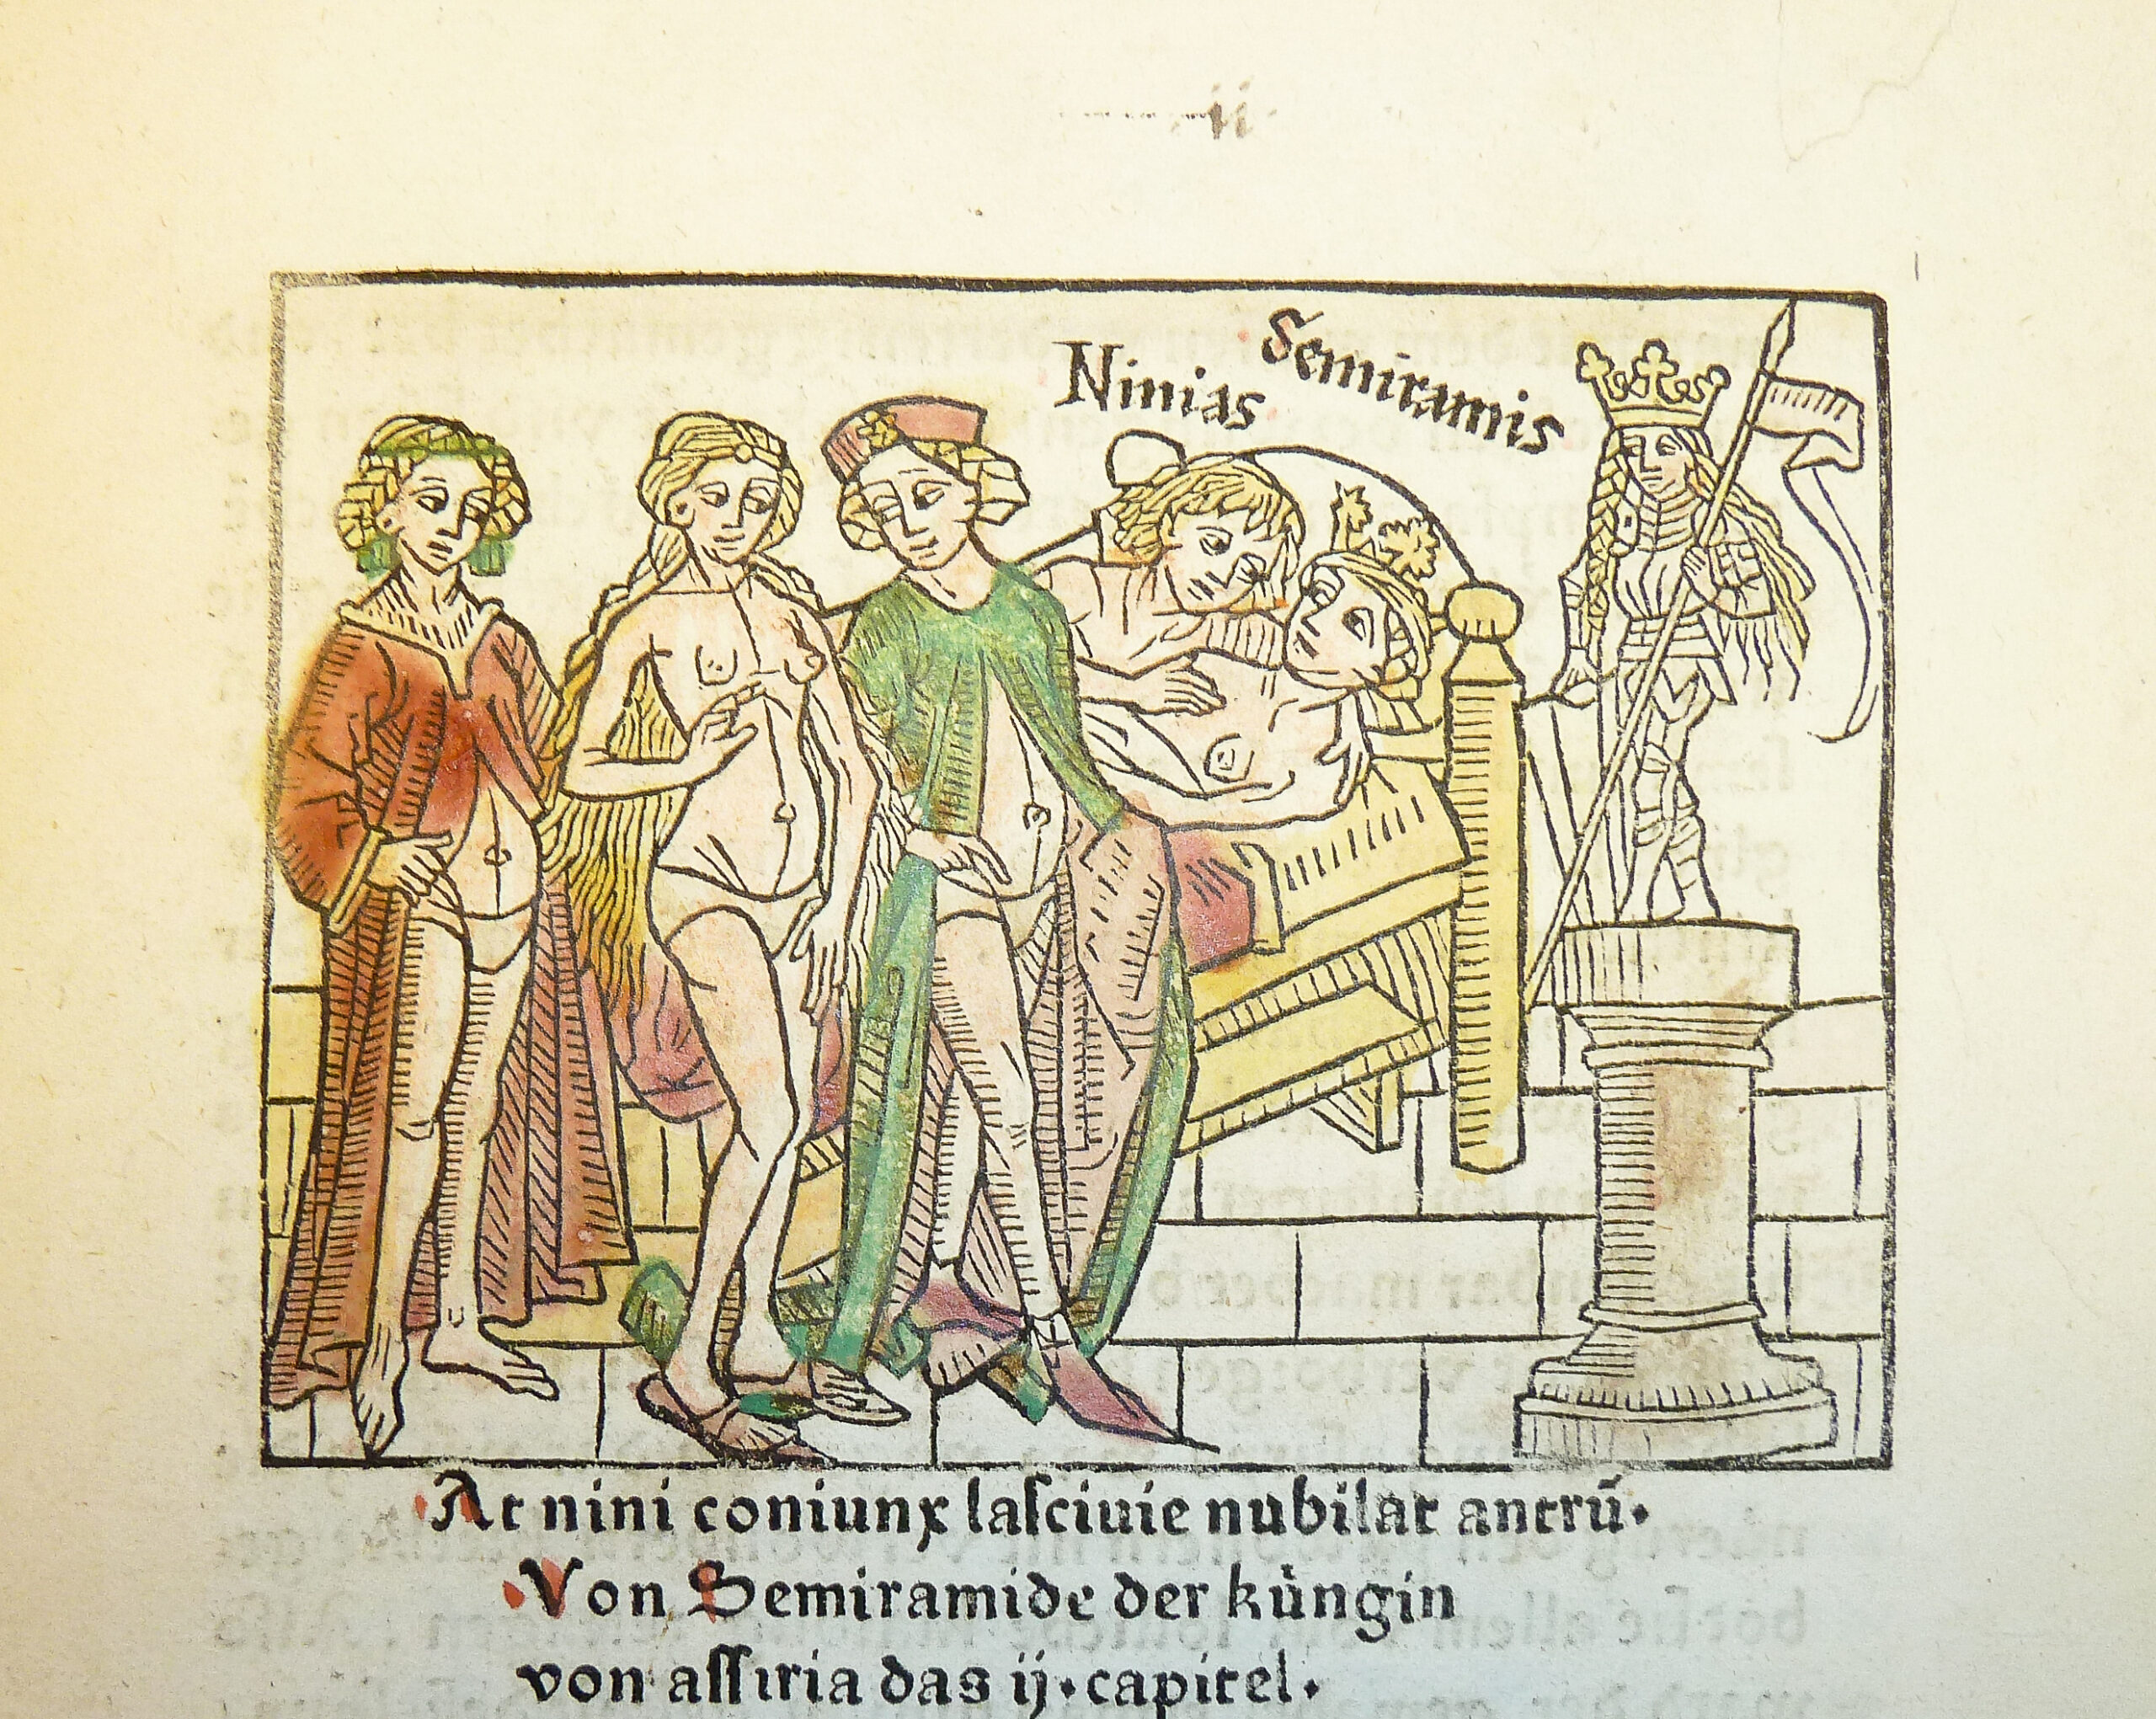 ii
Ninias
Semiramis
At nini coniunx laſciuie nubilat antrū.
Von Semiramide der küngin
von aſſiria das ij.capitel.